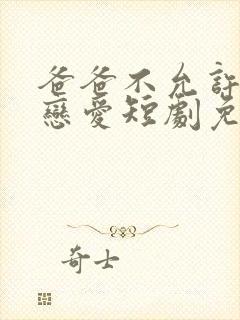 爸爸不允許
戀愛短劇免
奇士